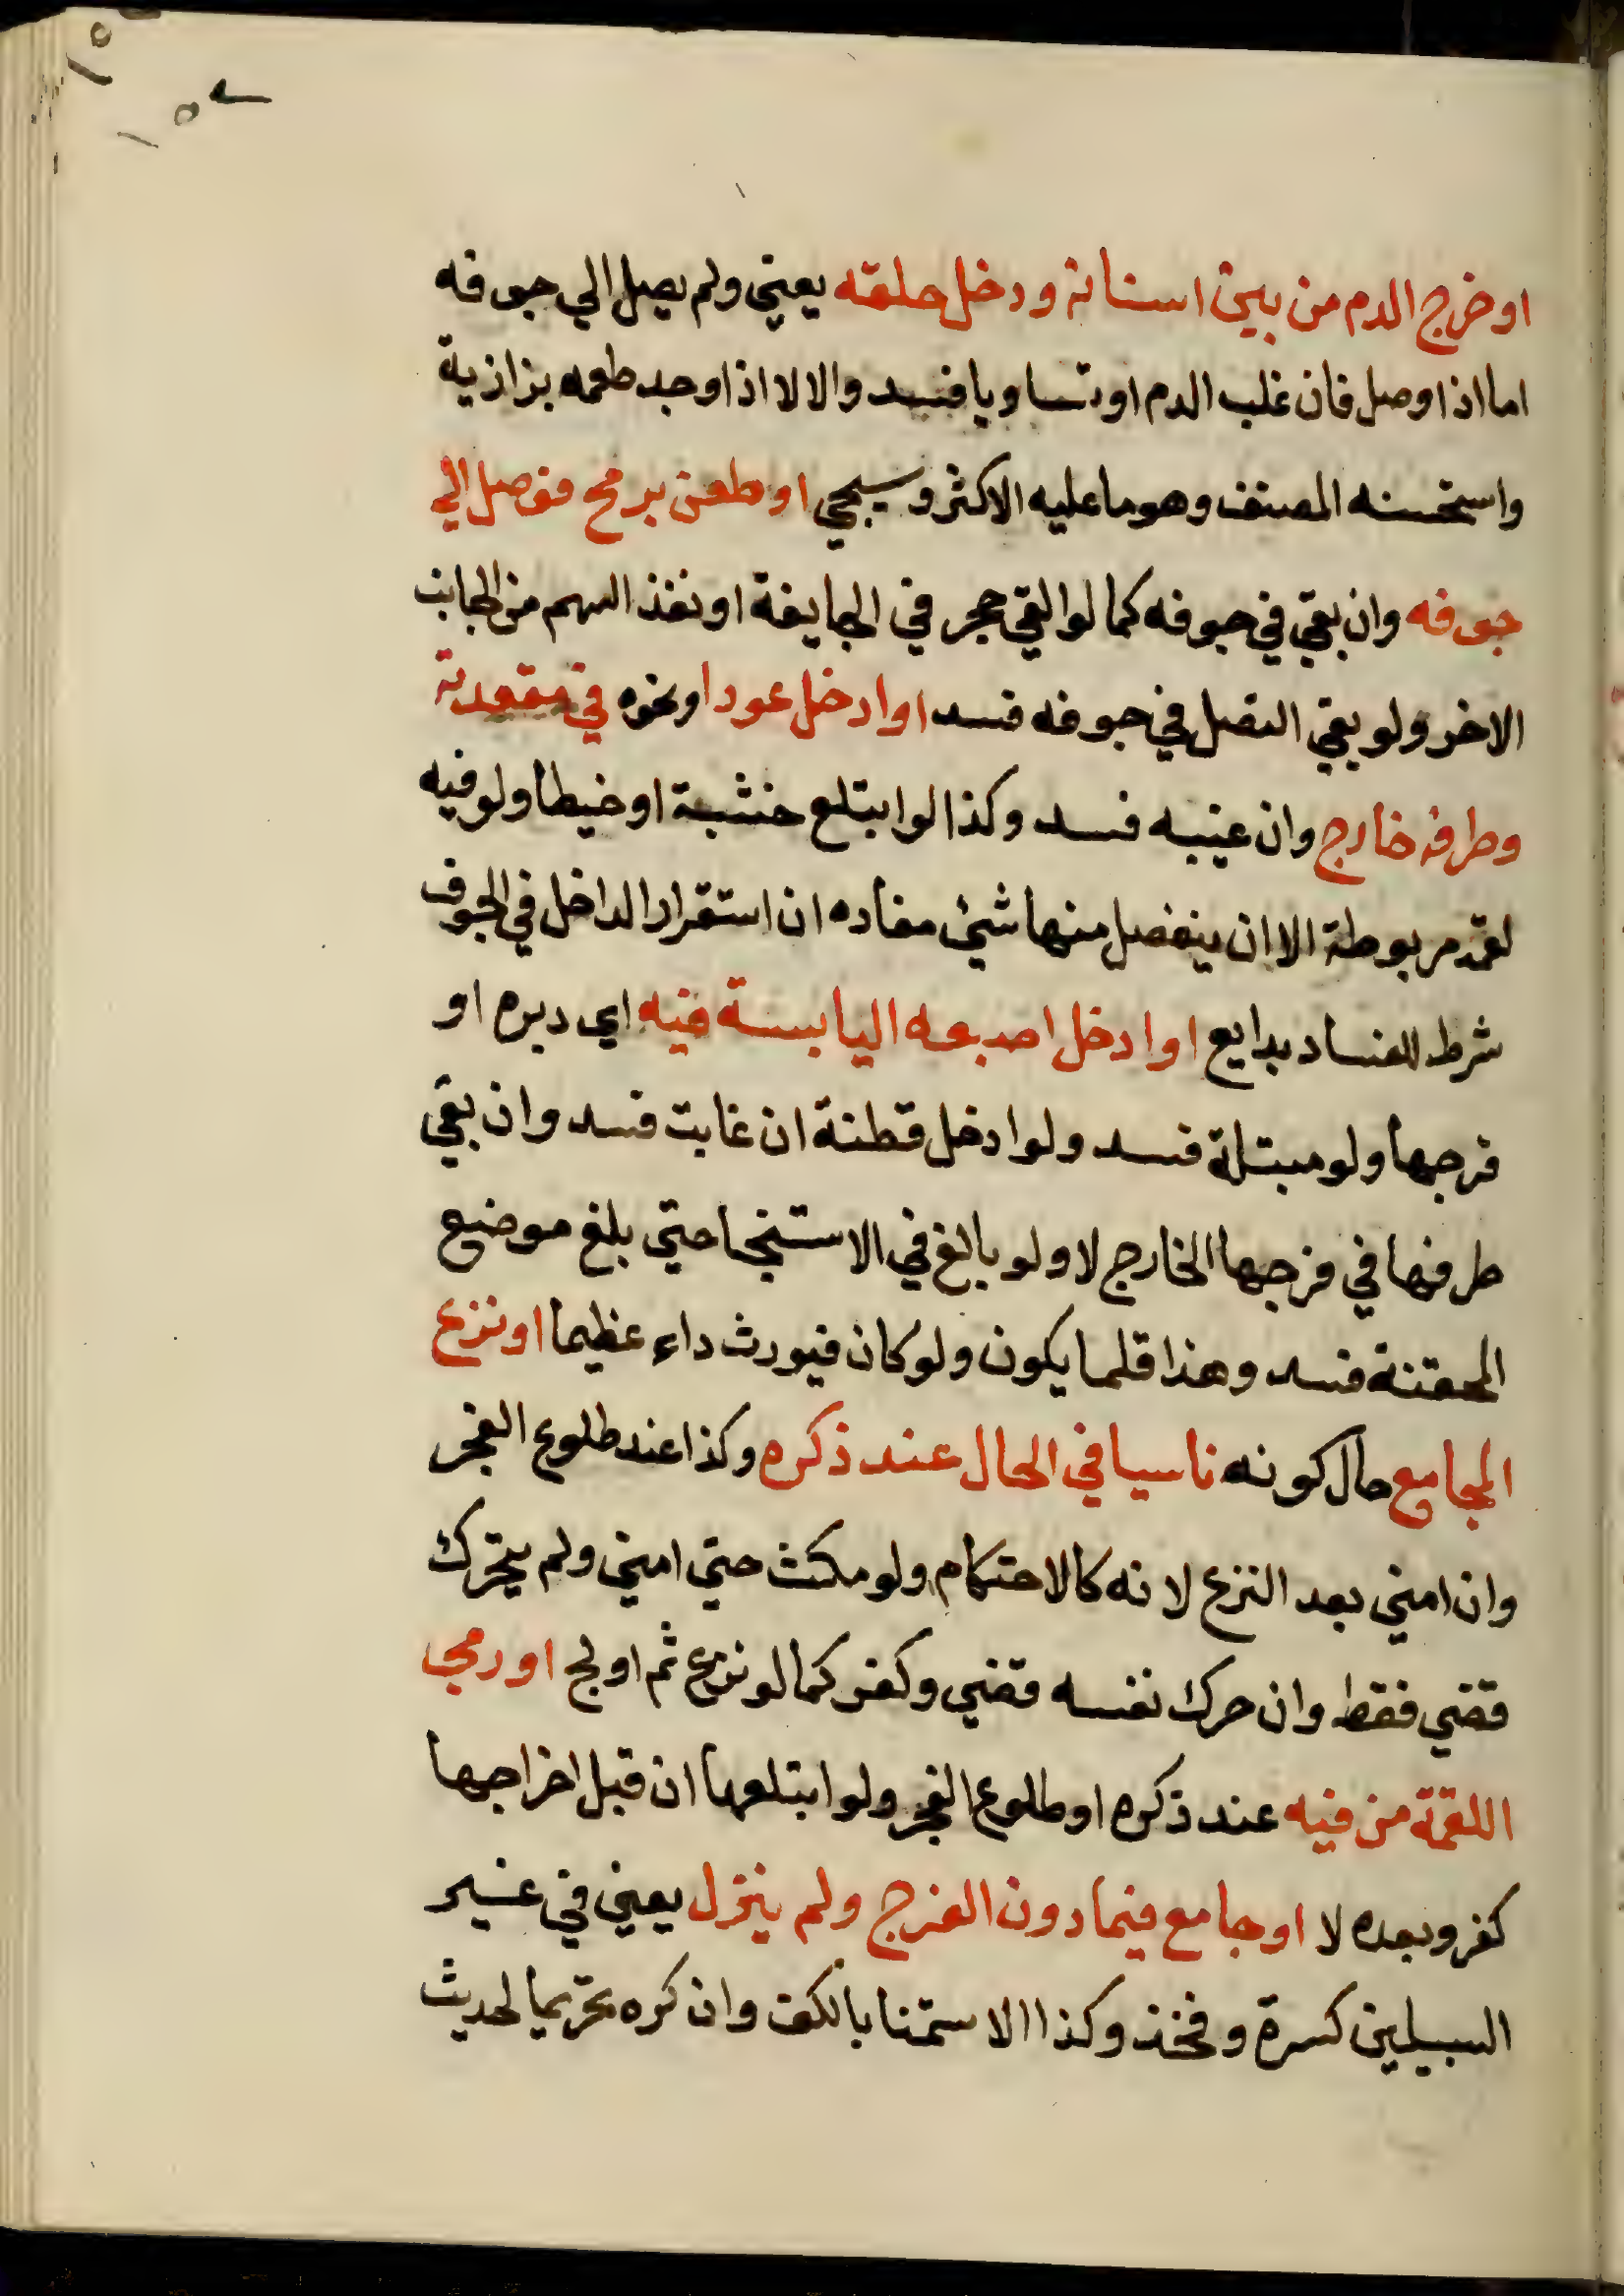 او خرج الدم من بين اسنانه ودخل حلقه يعني ولم يصل الي جوفه
اما اذا وصل فان غلب الدم او تساويا فسد والا لا اذا وجد طعمه بزازية
واستحسنه المصنف وهو ما عليه الاكثر وسيجي او طعن برمح فوصل الي
جوفه وان بقي في جوفه كما لو القي حجر في الجايفة او نفذ السهم من الجانب
الاخر ولو بقي النصل في جوفه فسد او ادخل عودا ونحوه في مقعدته
وطرفه خارج وان غيبه فسد وكذا لو ابتلع خشبة او خيطا ولو فيه
لقمة مربوطة الا ان ينفصل منها شئ مفاده ان استقرار الداخل في الجوف
شرط للفساد بدايع او ادخل اصبعه اليابسة فيه اي دبره او
فرجها ولو مبتلة فسد ولو ادخل قطنة ان غابت فسد وان بقي
طرفها في فرجها الخارج لا ولو بالغ في الاستنجا حتي بلغ موضع
المحقنة فسد وهذا قلما يكون ولو كان فيورث داء عظيما او نزع
المجامع حال كونه ناسيا في الحال عند ذكره وكذا عند طلوع الفجر
وان امني بعد النزع لانه كالاحتكام ولو مكث حتي امني ولم يتحرك
قضي فقط وان حرك نفسه قضي وكفر كما لو نزع ثم اولج او رمي
اللقمة من فيه عند ذكره او طلوع الفجر ولو ابتلعها ان قبل اخراجها
كفر وبعده لا او جامع فيما دون الفرج ولم ينزل يعني في غير
السبيلين كسرة وفخذ وكذا الاستمنا بالكف وان كره تحريما لحديث